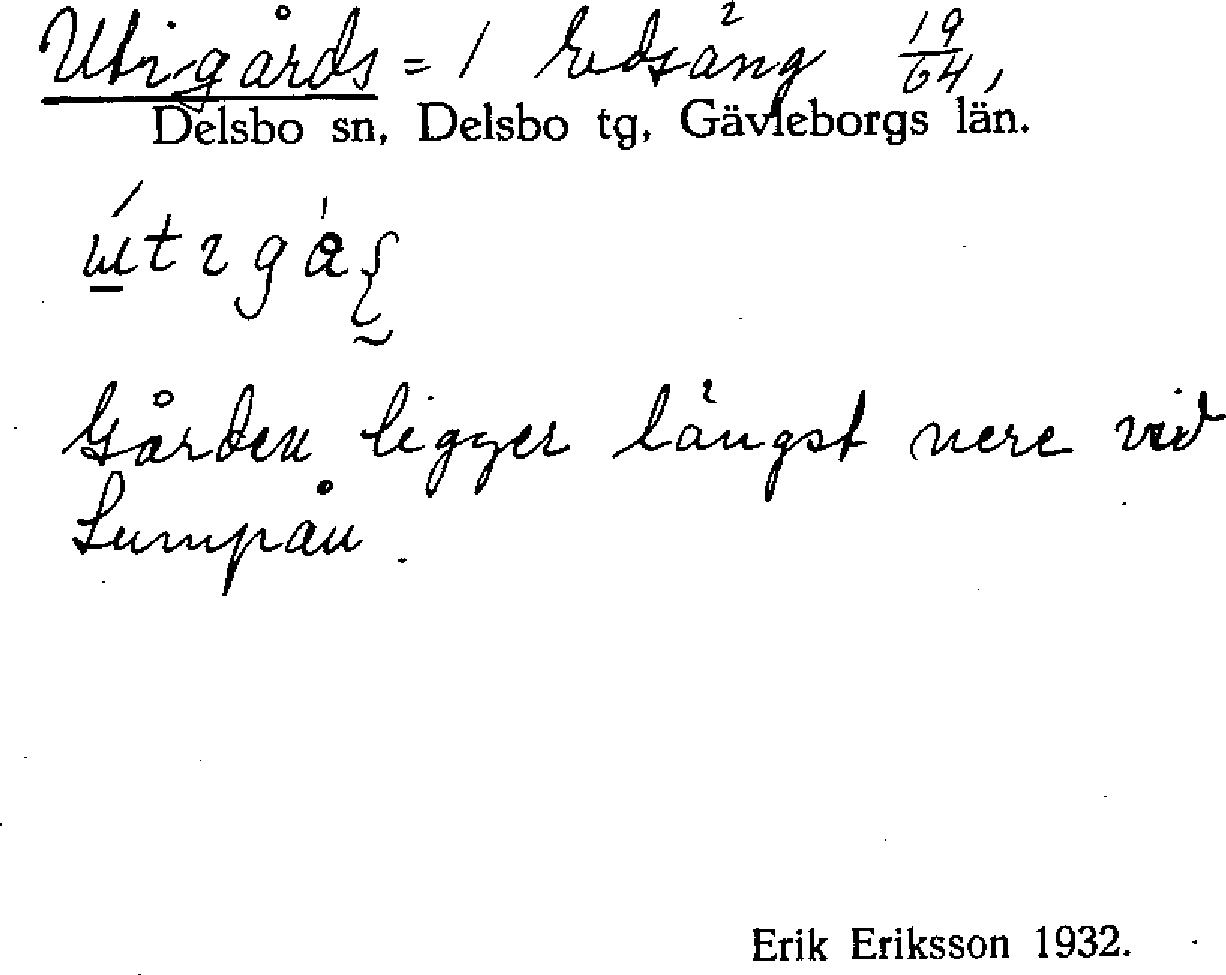 Utigårds = 1 Edsäng 19/64,
Delsbo sn, Delsbo tg, Gävleborgs län.
Gården ligger längst nere vid
Sumpån.
Erik Eriksson 1932.